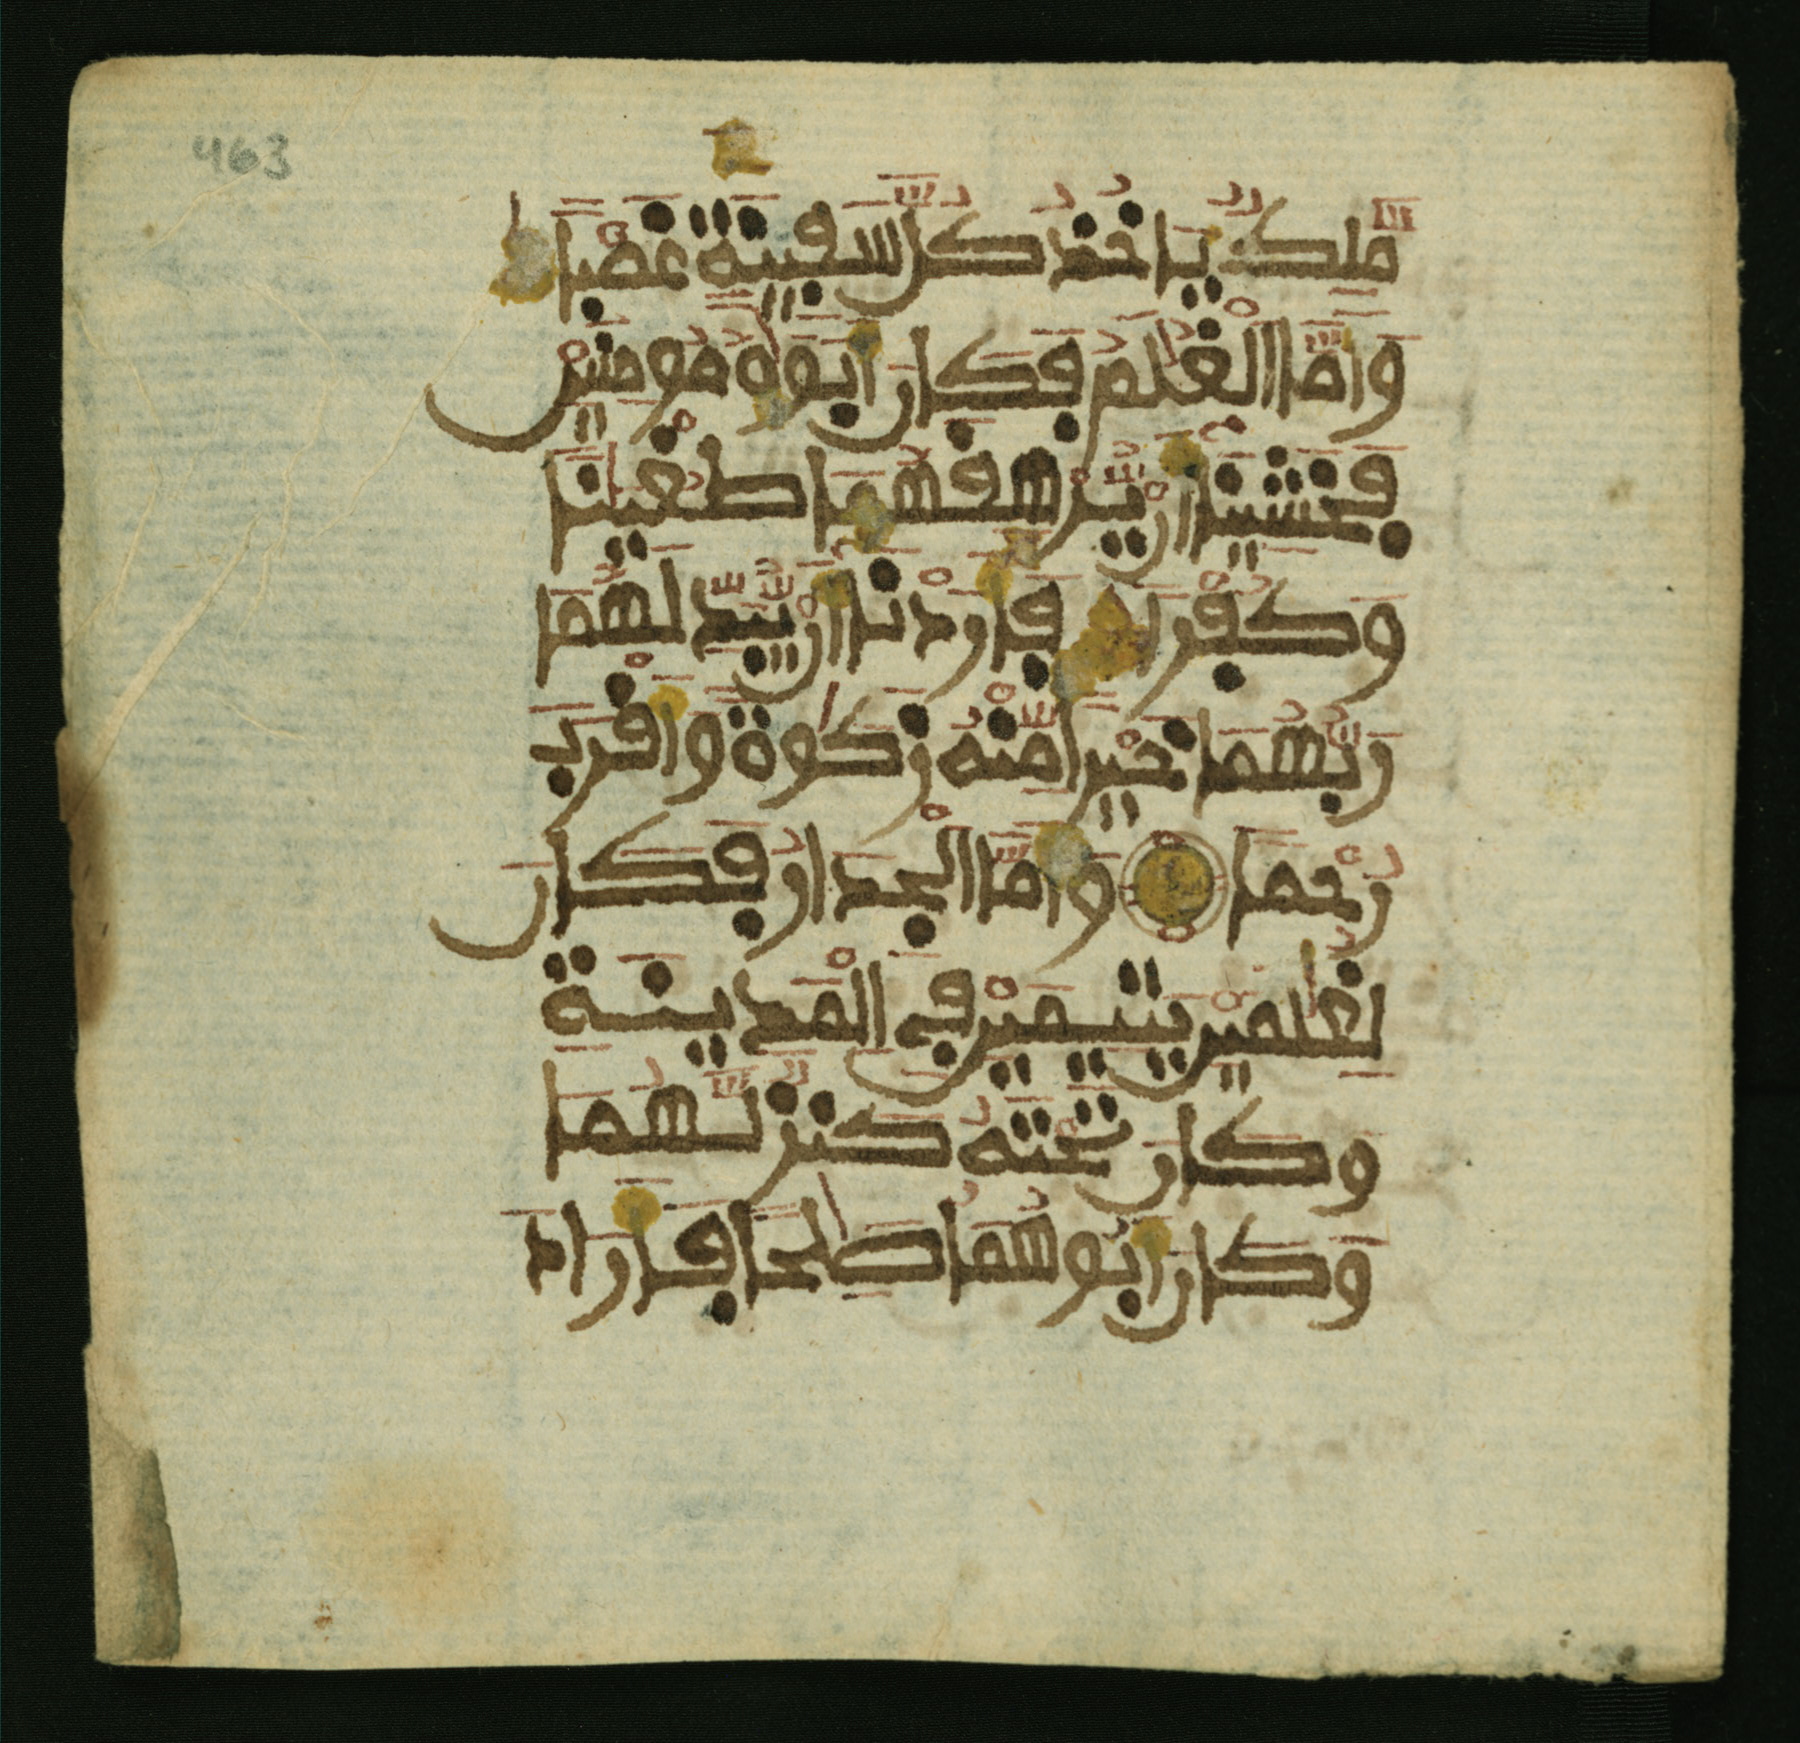 463
ملك ياخذ كل سفينة غصبا
واما الغلم فكان ابواه مومنين
فخشينا ان يرهقهما طغينا
وكفرا فاردنا ان يبدلهما
ربهما خيرا منه زكوة واقرب
رحما واما الجدار فكان
لغلمين يتيمين في المدينة
وكان تحته كنز لهما
وكان ابوهما صلحا فاراد